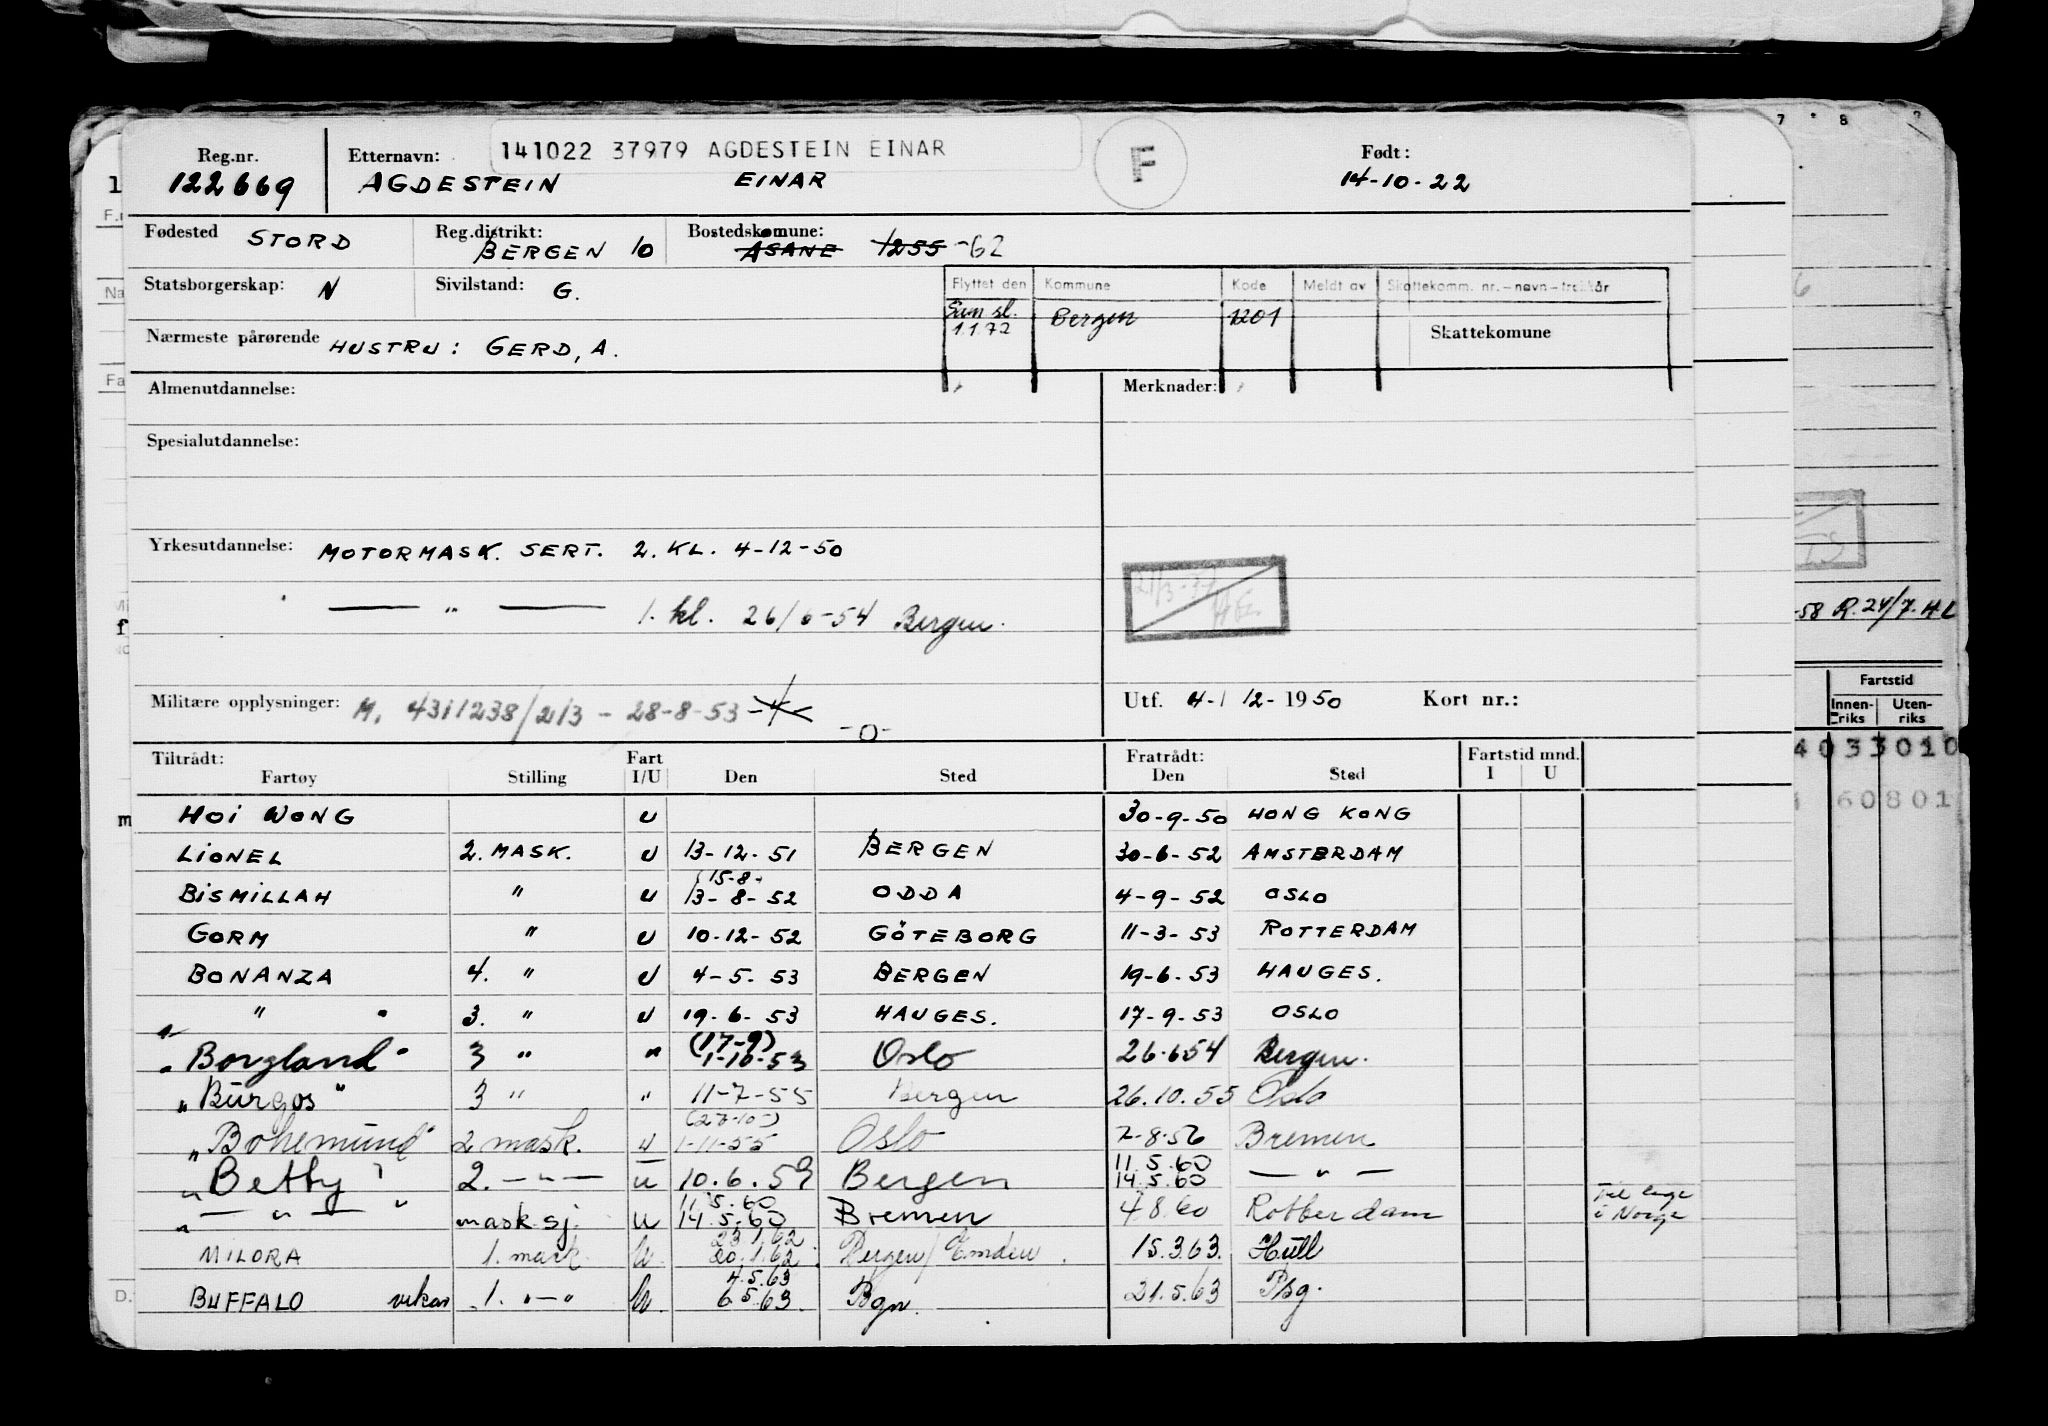 141022 37979 AGDESTEIN EINAR
F
Reg.nr. Etternavn: Født:
122669 AGDESTEIN EINAR 14-10-22
Fødested STORD Reg.distrikt: BERGEN 10 Bostedskomune: ÅSANE 1255 -62
Statsborgerskap: N Sivilstand: G.
Flyttet den Kommune Kode Meldt av Skattekomm. nr.-navn-trekkår
Sam sl. 1.1.72 Bergen 1201 Skattekomune
Nærmeste pårørende HUSTRU: GERD, A.
Almenutdannelse: Merknader:
Spesialutdannelse:
Yrkesutdannelse: MOTORMASK. SERT. 2. KL. 4-12-50
— " — 1. kl. 26/6-54 Bergen.
Militære opplysninger: M. 4311238/213 - 28-8-53 -0-
Utf. 4-/12-1950 Kort nr.:
Tiltrådt: Fart Fratrådt: Fartstid mnd.
Fartøy Stilling I/U Den Sted Den Sted I U
HOI WONG U 30-9-50 HONG KONG
LIONEL 2. MASK. U 13-12-51 BERGEN 30-6-52 AMSTERDAM
BISMILLAH " U (15-8- 13-8-52 ODDA 4-9-52 OSLO
GORM " U 10-12-52 GÖTEBORG 11-3-53 ROTTERDAM
BONANZA 4. " U 4-5-53 BERGEN 19-6-53 HAUGES.
" 3. " U 19-6-53 HAUGES. 17-9-53 OSLO
"Borgland" 3 " " (17-9) 1-10-53 Oslo 26.6.54 Bergen.
"Burgos" 3 " " 11-7-55 Bergen 26.10.55 Oslo
"Bohemund" 2 mask. u (27-10) 1-11-55 Oslo 7-8-56 Bremen
"Betty" 2. —"— u 10.6.59 Bergen 11.5.60 14.5.60 —"—
" —"— " mask.sj. u 11.5.60 14.5.60 Bremen 4.8.60 Rotterdam Til lege i Norge
MILORA 1. mask. U. 23.1.62 20.1.62. Bergen/Emden. 15.3.63. Hull
BUFFALO vikar 1. "—" U. 4.5.63 6.5.63. Bgn. 21.5.63 Psg.
-58 R.24/7. HL
Fartstid
Innenriks Utenriks
4033010
60801
7 8